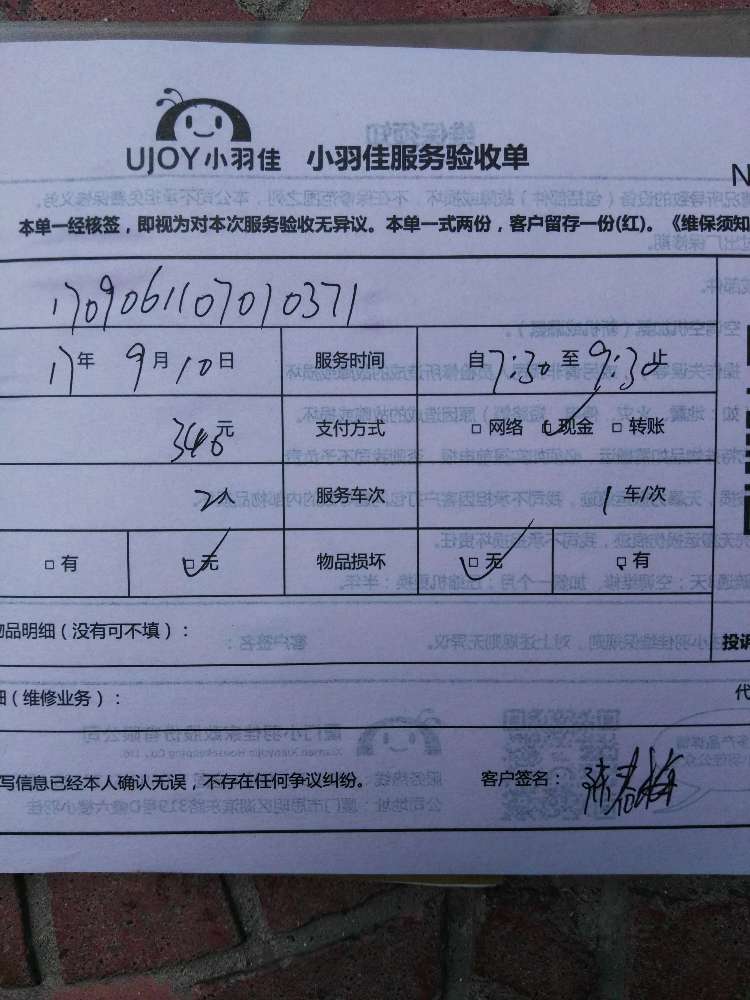 UJOY小羽佳 小羽佳服务验收单
N
本单一经核签，即视为对本次服务验收无异议。本单一式两份，客户留存一份(红)。《维保须知
1709061107010371
17年 9月10日 服务时间 自7:30至9:30止
346元 支付方式 □ 网络 □ 现金 □ 转账
2人 服务车次 1 车/次
□ 有 □ 无 物品损坏 □ 无 □ 有
品明细（没有可不填）：
投诉
细（维修业务）：
代
写信息已经本人确认无误，不存在任何争议纠纷。 客户签名：